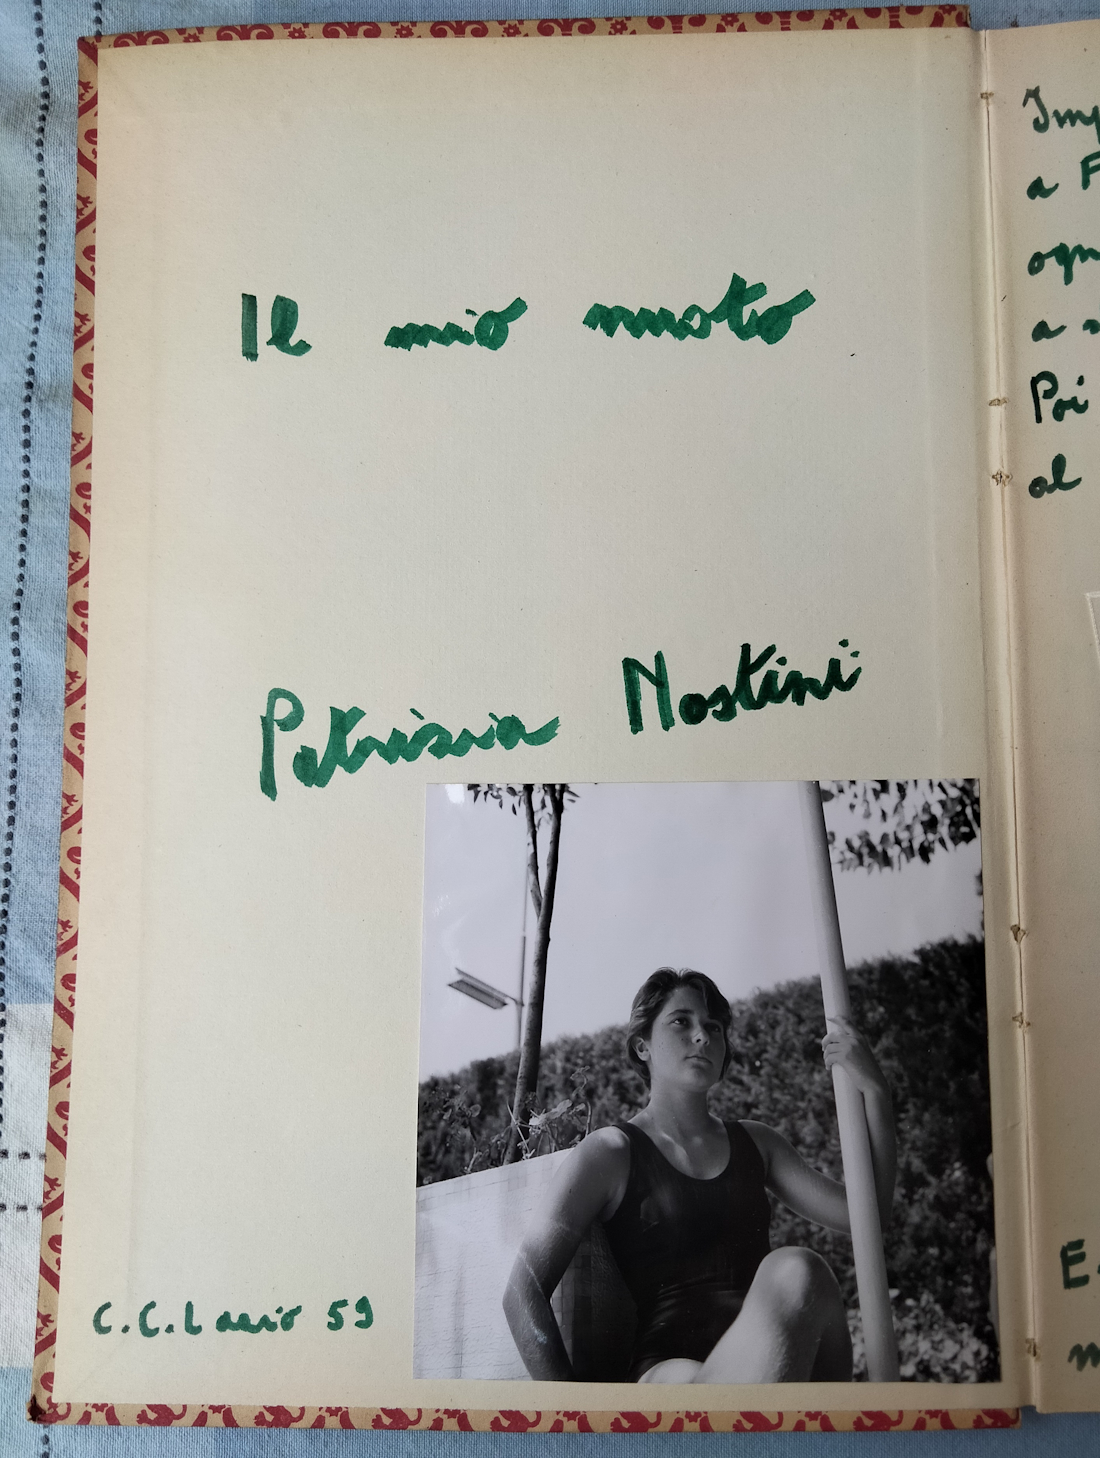 Il mio nuoto
Patrizia Nostini
C.C. Lazio 59
Imp
a F
ogn
a
Poi
al
E
m